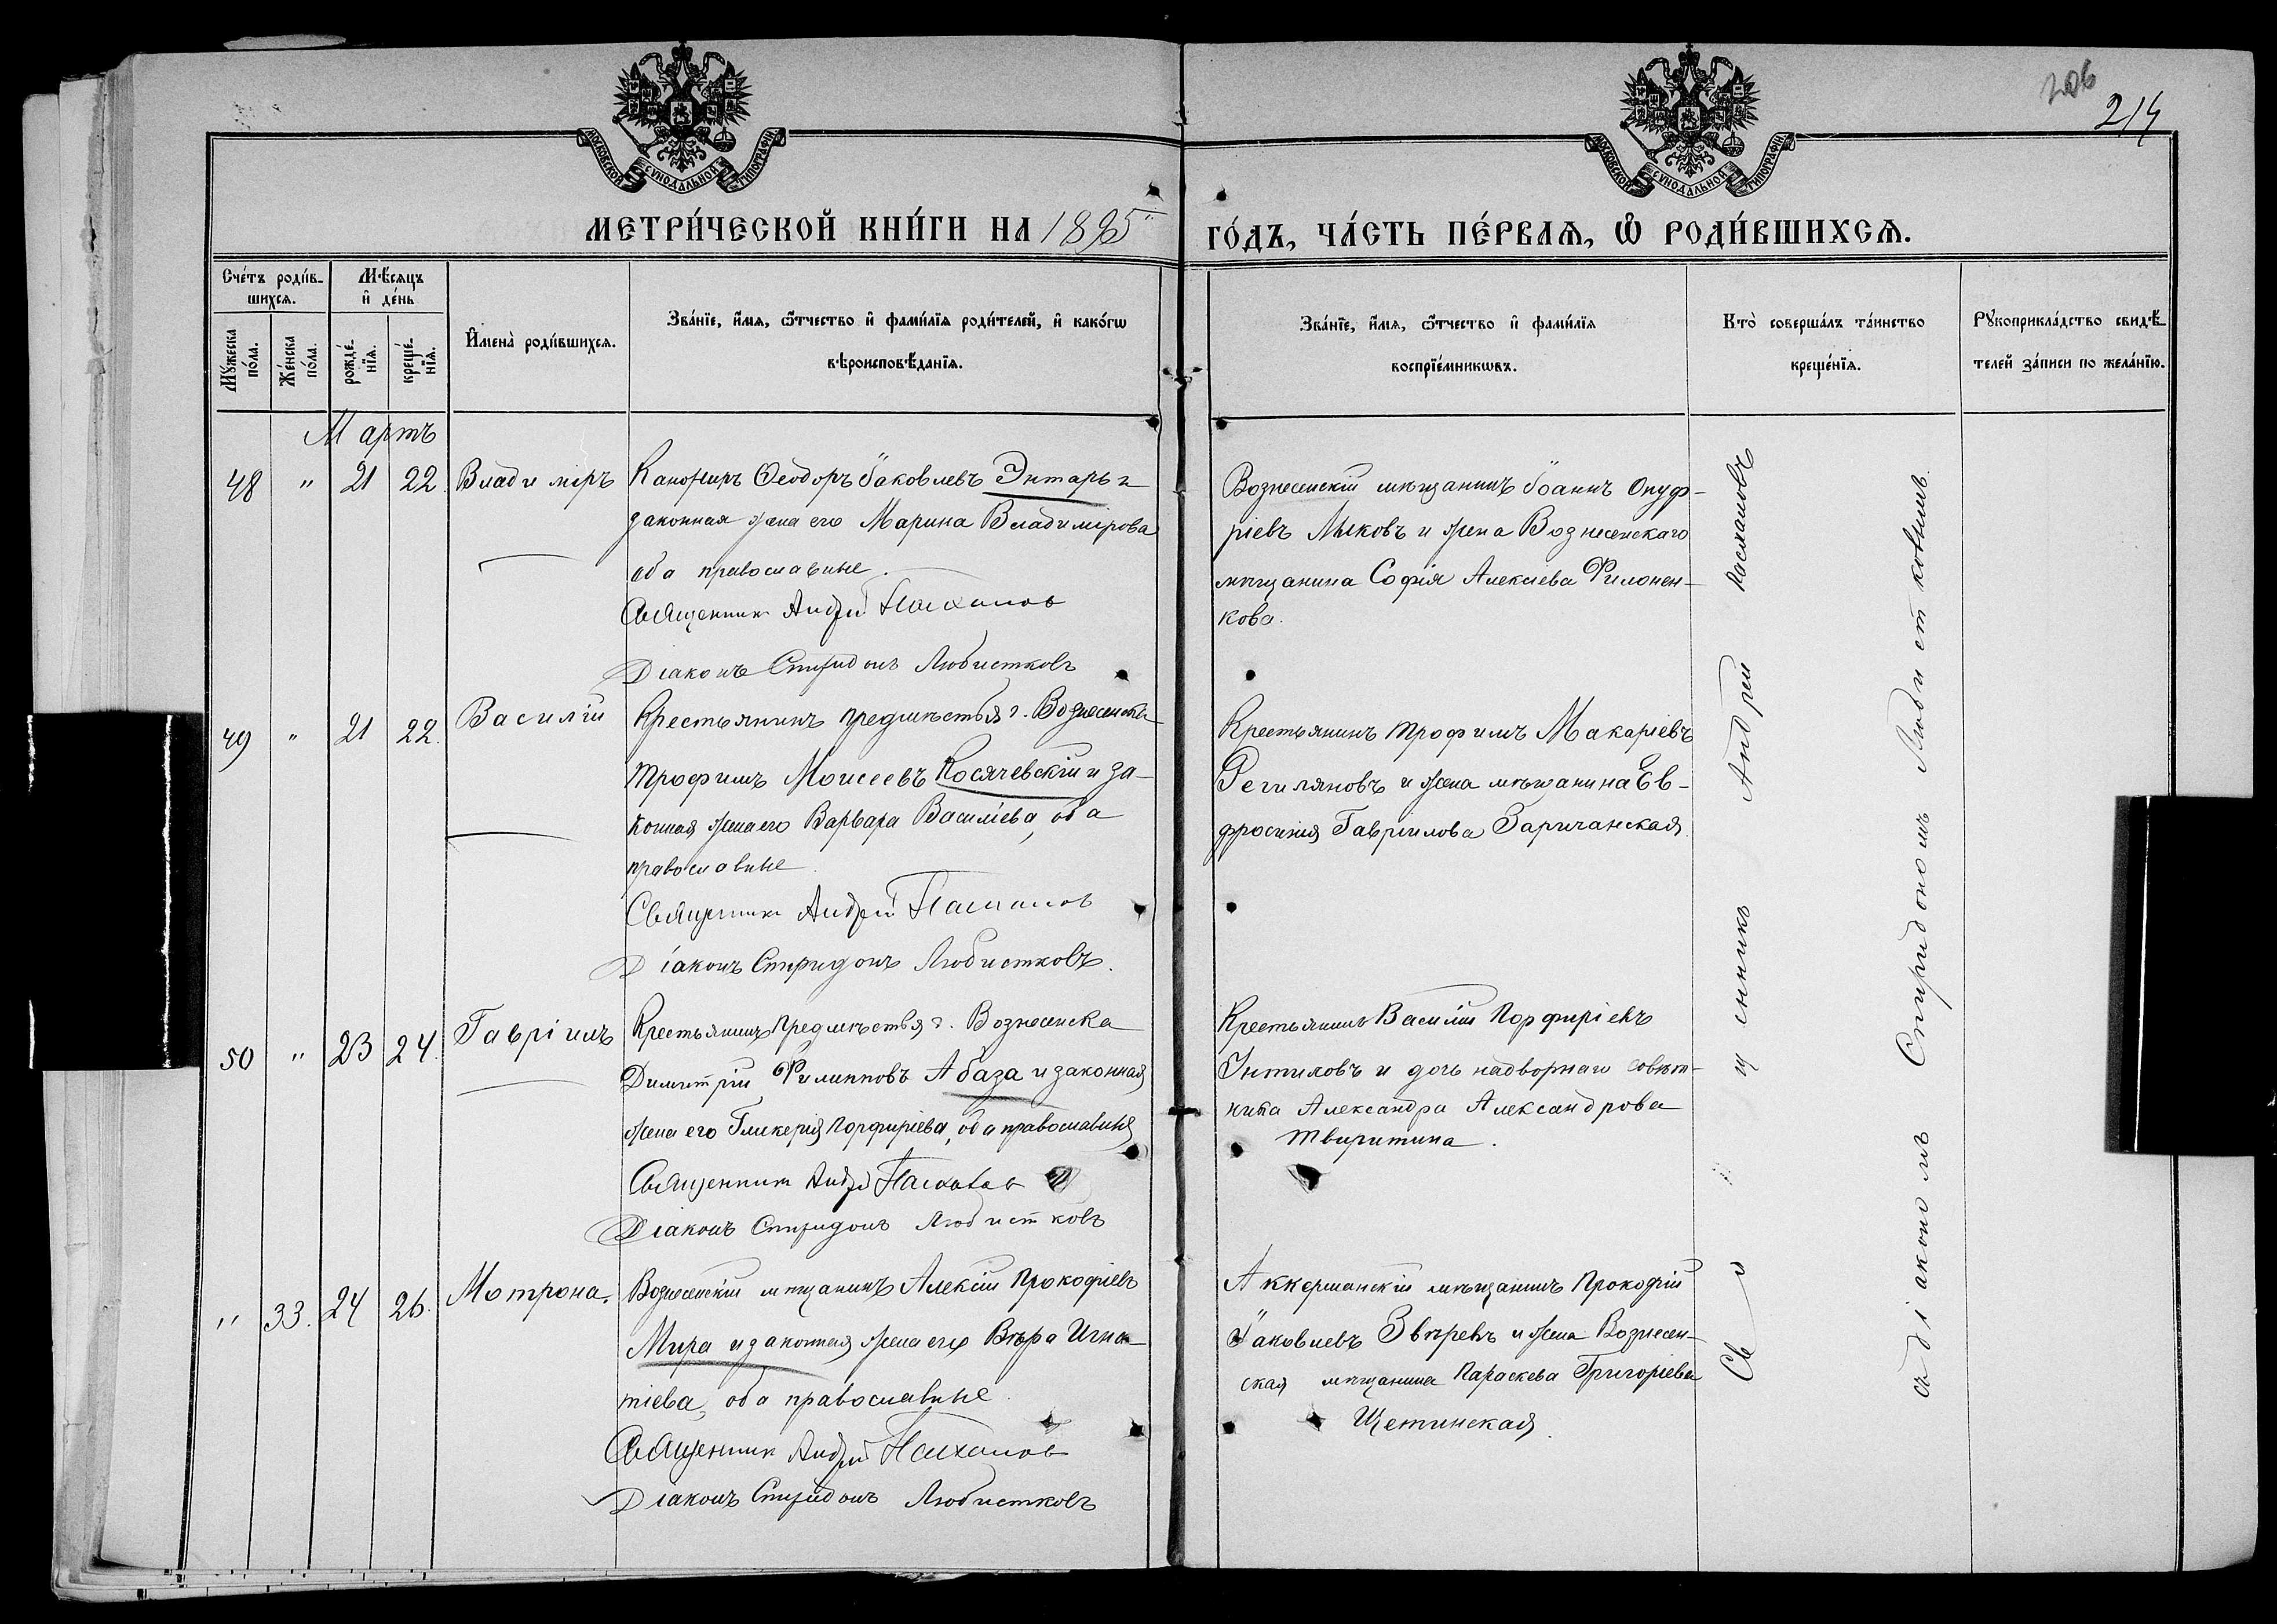 206
214
МОСКОВСКОЙ СѴНОДАЛЬНОЙ ТИПОГРАФІИ
МОСКОВСКОЙ СѴНОДАЛЬНОЙ ТИПОГРАФІИ
МЕТРИ́ЧЕСКОЙ КНИ́ГИ НА 1895
ГО́ДЪ, ЧА́СТЬ ПЕ́РВАѦ, Ѡ РОДИ́ВШИХСѦ.
Сче́тъ роди́в-
шихсѧ.
Мѣ́сѧцъ
и҆ де́нь
Мꙋ́жеска
по́ла.
Же́нска
по́ла.
рожде́-
нїѧ.
креще́-
нїѧ.
И҆мена̀ роди́вшихсѧ.
Зва́нїе, и҆́мѧ, ѻ҆́тчество и҆ фами́лїѧ роди́телей, и҆ како́гѡ
вѣроисповѣ́данїѧ.
Зва́нїе, и҆́мѧ, ѻ҆́тчество и҆ фами́лїѧ
воспрїе́мникѡвъ.
Кто̀ соверша́лъ та́инство
креще́нїѧ.
Рꙋкоприкла́дство свидѣ́-
телей за́писи по жела́нїю.
Мартъ
48 " 21 22. Владиміръ
Канониръ Ѳеодоръ Іаковлевъ Энтарь и
законная жена его Марина Владимірова
оба православные.
Священник Андрей Пасхалов
Діаконъ Спиридонъ Любистковъ
Вознесенскій мѣщанинъ Іоаннъ Онуф-
ріевъ Лысковъ и жена Вознесенскаго
мѣщанина Софія Алексіева Филонен-
кова.
49 " 21 22. Василій
Крестьянинъ предмѣстья г. Вознесенска
Трофимъ Моисеевъ Косячевскій и за-
конная жена его Варвара Васильева, оба
православные.
Священник Андрей Пасхалов
Діаконъ Спиридонъ Любистковъ.
Крестьянинъ Трофимъ Макаріевъ
и жена мѣщанина Ев-
фросинія Гавріилова Заричанская.
50 " 23 24. Гавріилъ
Крестьянинъ предмѣстья г. Вознесенска
Димитрій Филипповъ Абаза и законная
жена его Гликерія Порфиріева, оба православныя
Священник Андрей Пасхалов
Діаконъ Спиридонъ Любистковъ
Крестьянинъ Василій Порфиріевъ
и дочь надворнаго совѣт-
ника Александра Александрова
Тviритина.
" 33. 24 26. Мотрона.
Вознесенскій мѣщанинъ Алексій Прокофіевъ
Мира и законная жена его Вѣра Игна-
тіева, оба православные.
Священник Андрей Пасхалов
Діаконъ Спиридонъ Любистковъ
Аккерманскій мѣщанинъ Прокофій
Іаковлевъ Звѣревъ и жена Вознесен-
ская мѣщанина Параскева Григоріева
Щетинская.
Священникъ Андрей Пасхаловъ
съ діакономъ Спиридономъ Любистковымъ.